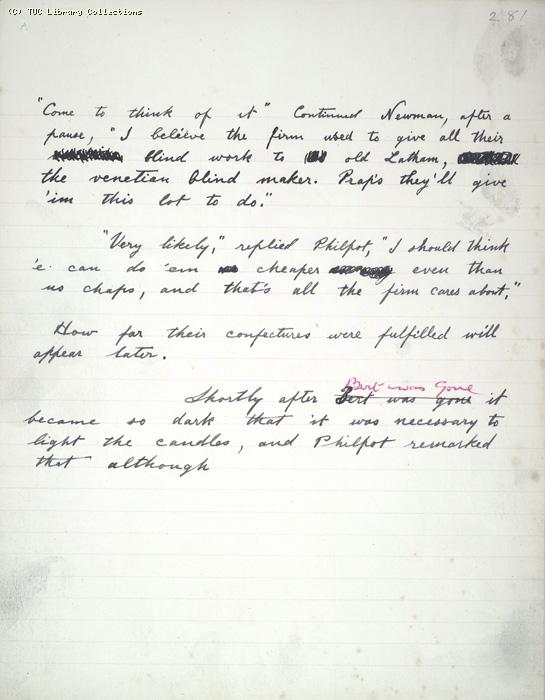 (C) TUC Library Collections
281
"Come to think of it" Continued Newman, after a
pause, "I believe the firm used to give all their
blind work to old Latham,
the venetian blind maker. Prap's they'll give
'im this lot to do."
"Very likely," replied Philpot, "I should think
'e can do 'em cheaper even than
us chaps, and that's all the firm cares about."
How far their confectures were fulfilled will
appear later.
Bert was gone
Shortly after Bert was gone it
became so dark that it was necessary to
light the candles, and Philpot remarked
that although